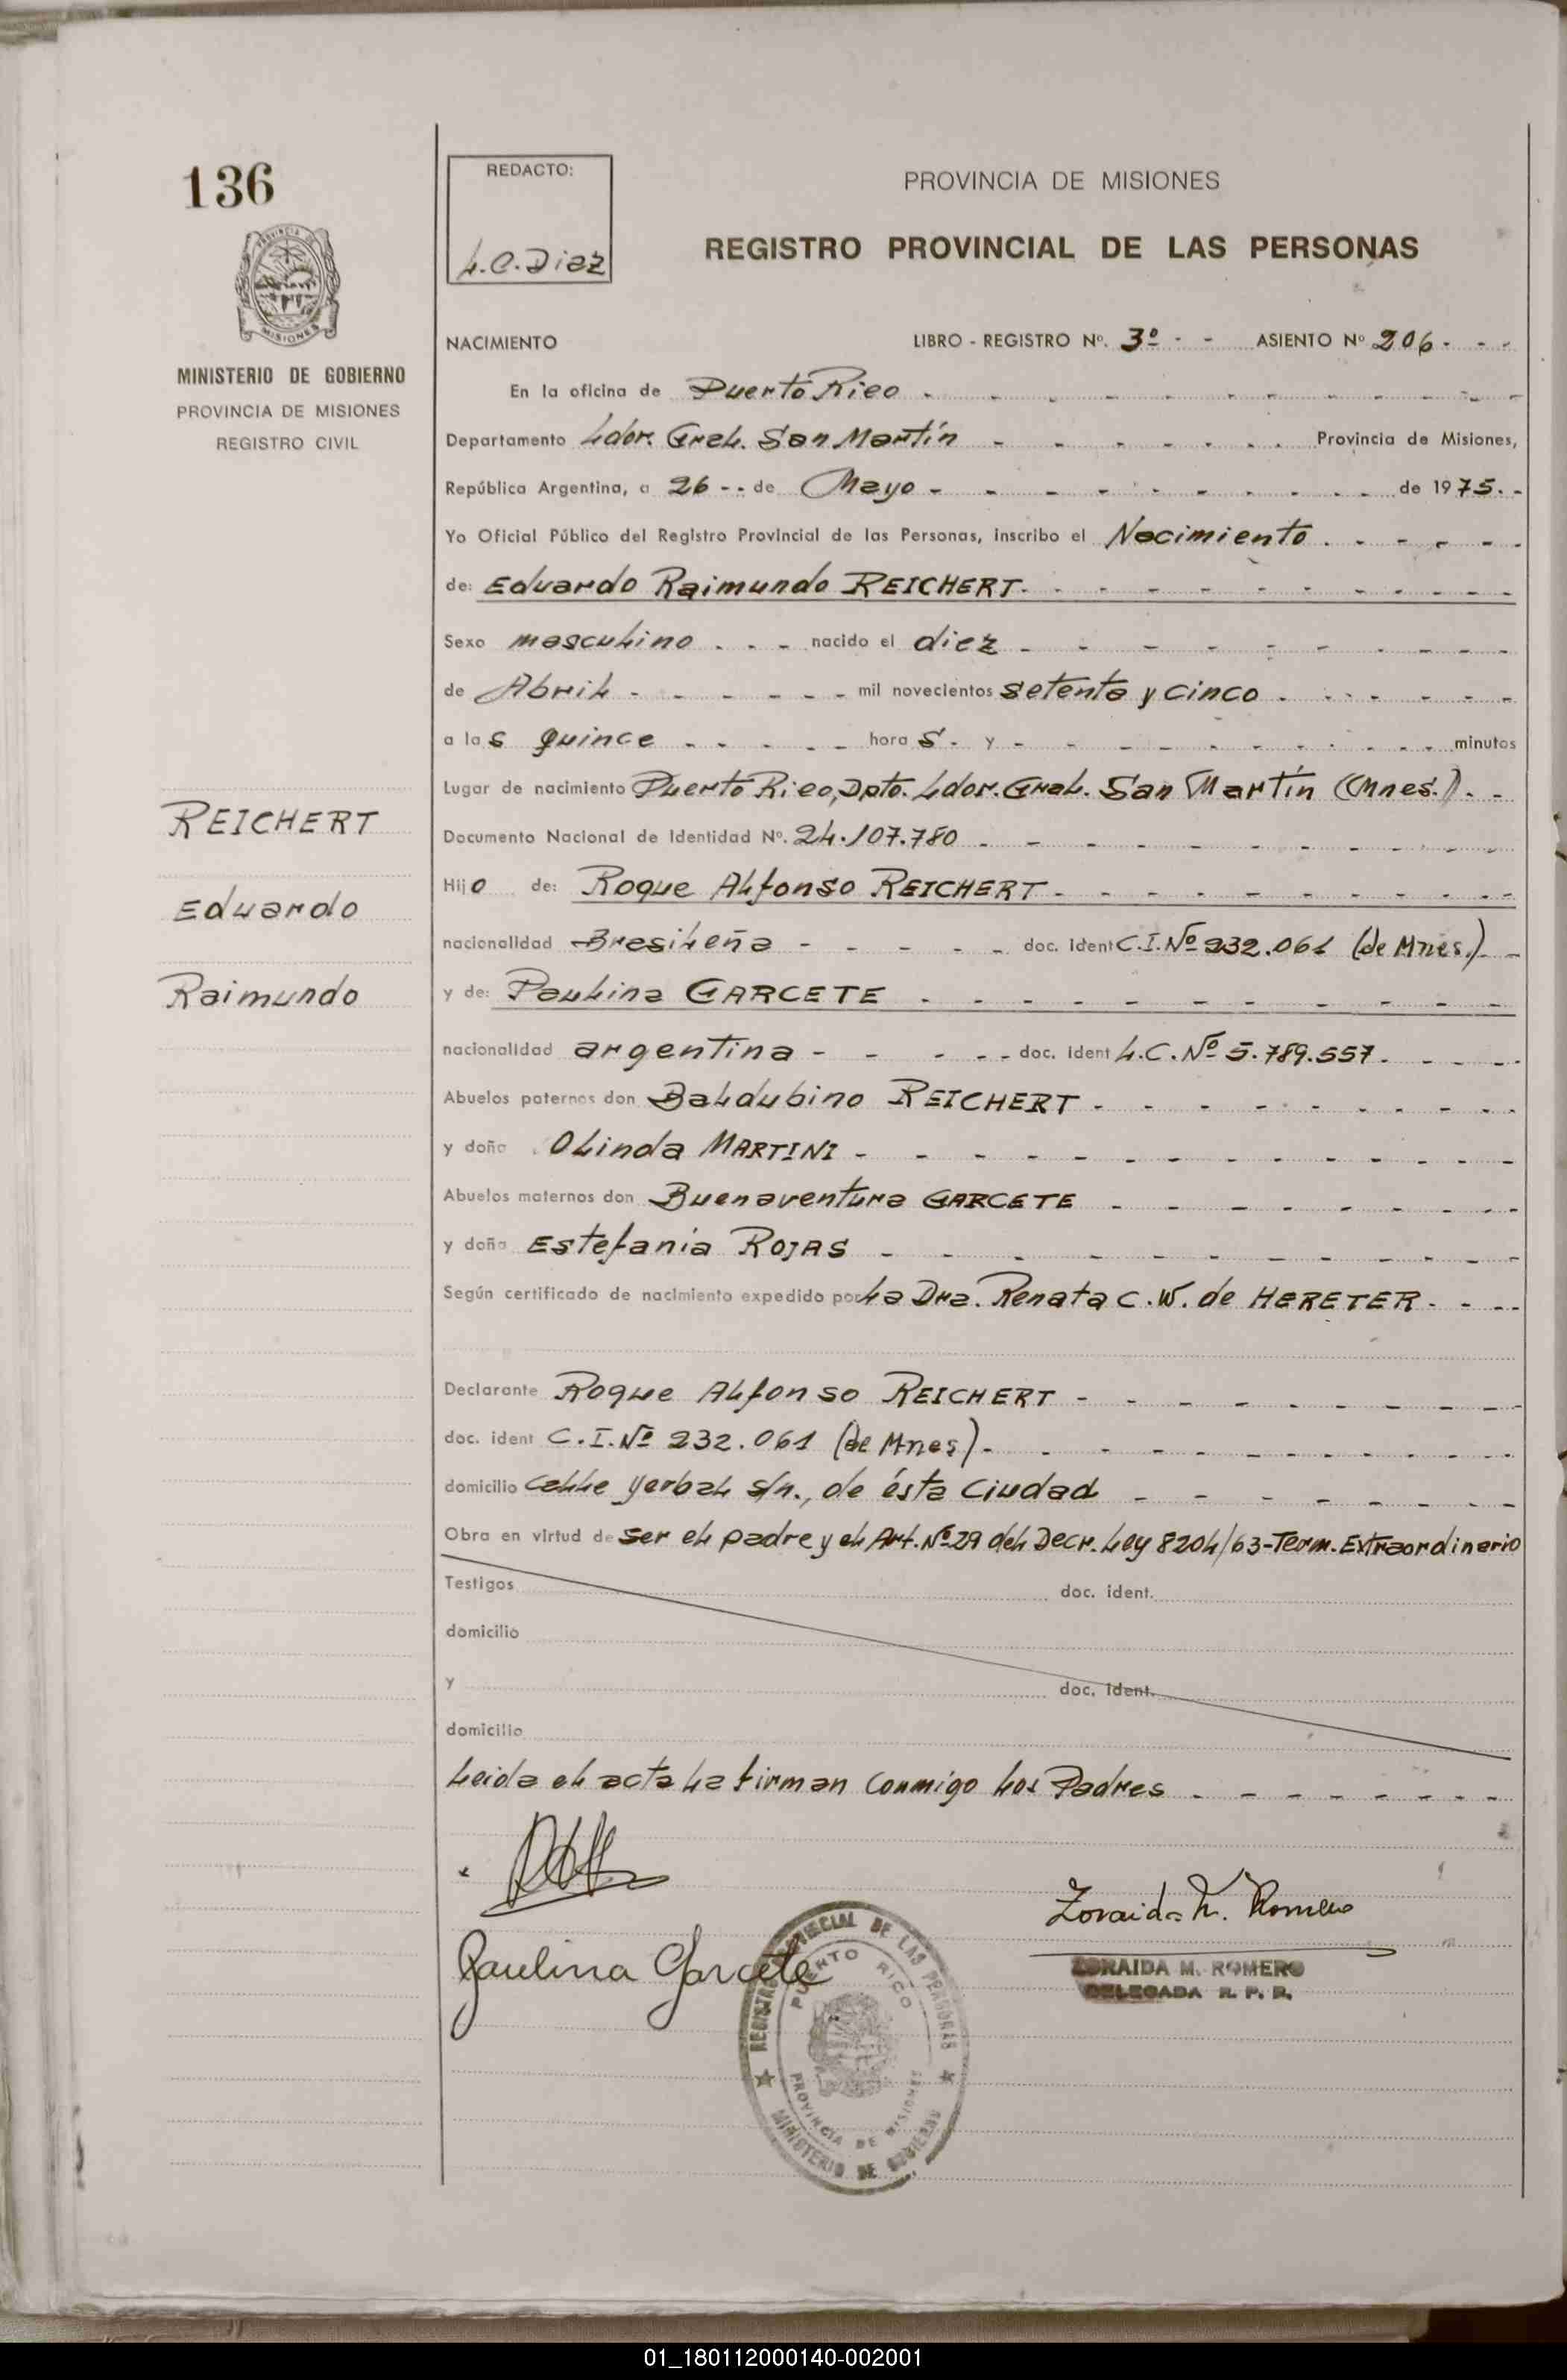 136
MINISTERIO DE GOBIERNO
PROVINCIA DE MISIONES
REGISTRO CIVIL
REICHERT
Eduardo
Raimundo
REDACTO:
L.C.Diaz
PROVINCIA DE MISIONES
REGISTRO PROVINCIAL DE LAS PERSONAS
NACIMIENTO LIBRO - REGISTRO Nº. 3º - - ASIENTO Nº 206 - - -
En la oficina de Puerto Rico
Departamento Ldor. Gral. San Martín Provincia de Misiones,
República Argentina, a 26 -- de Mayo de 1975. -
Yo Oficial Público del Registro Provincial de las Personas, inscribo el Nacimiento
de: Eduardo Raimundo REICHERT
Sexo masculino nacido el diez
de Abril mil novecientos setenta y cinco
a las quince horas. y minutos
Lugar de nacimiento Puerto Rico, Dpto. Ldor. Gral. San Martín (Mnes.). -
Documento Nacional de Identidad Nº. 24.107.780
Hijo de: Roque Alfonso REICHERT
nacionalidad Brasileña doc. ident C.I. Nº 232.061 (de Mnes.)
y de: Paulina GARCETE
nacionalidad argentina doc. ident L.C. Nº 5.789.557
Abuelos paternos don Baldubino REICHERT
y doña Olinda MARTINI
Abuelos maternos don Buenaventura GARCETE
y doña Estefania ROJAS
Según certificado de nacimiento expedido por La Dra. Renata C. W. de HERETER
Declarante Roque Alfonso REICHERT
doc. ident C.I. Nº 232.061 (de Mnes)
domicilio calle yerbal s/n., de ésta Ciudad
Obra en virtud de ser el padre y el Art. Nº 29 del Decr. Ley 8204/63-Term. Extraordinario
Testigos doc. ident.
domicilio
y doc. ident.
domicilio
Leida el acta la firman conmigo los Padres
Zoraida M. Romero
Paulina Garcete
ZORAIDA M. ROMERO
DELEGADA R. P. P.
REGISTRO PROVINCIAL DE LAS PERSONAS
PUERTO RICO
PROVINCIA DE MISIONES
MINISTERIO DE GOBIERNO
01_180112000140-002001